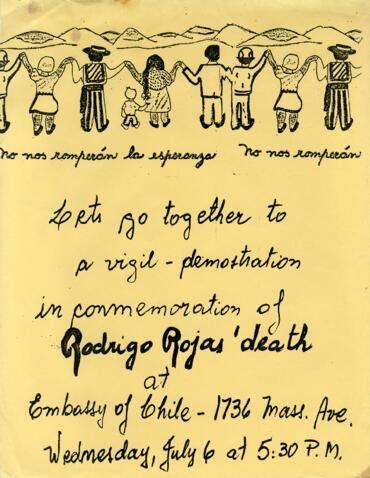 No nos romperán la esperanza No nos romperán
Lets go together to
a vigil - demostration
in conmemoration of
Rodrigo Rojas' death
at
Embassy of Chile - 1736 Mass. Ave.
Wednesday, July 6 at 5:30 P.M.